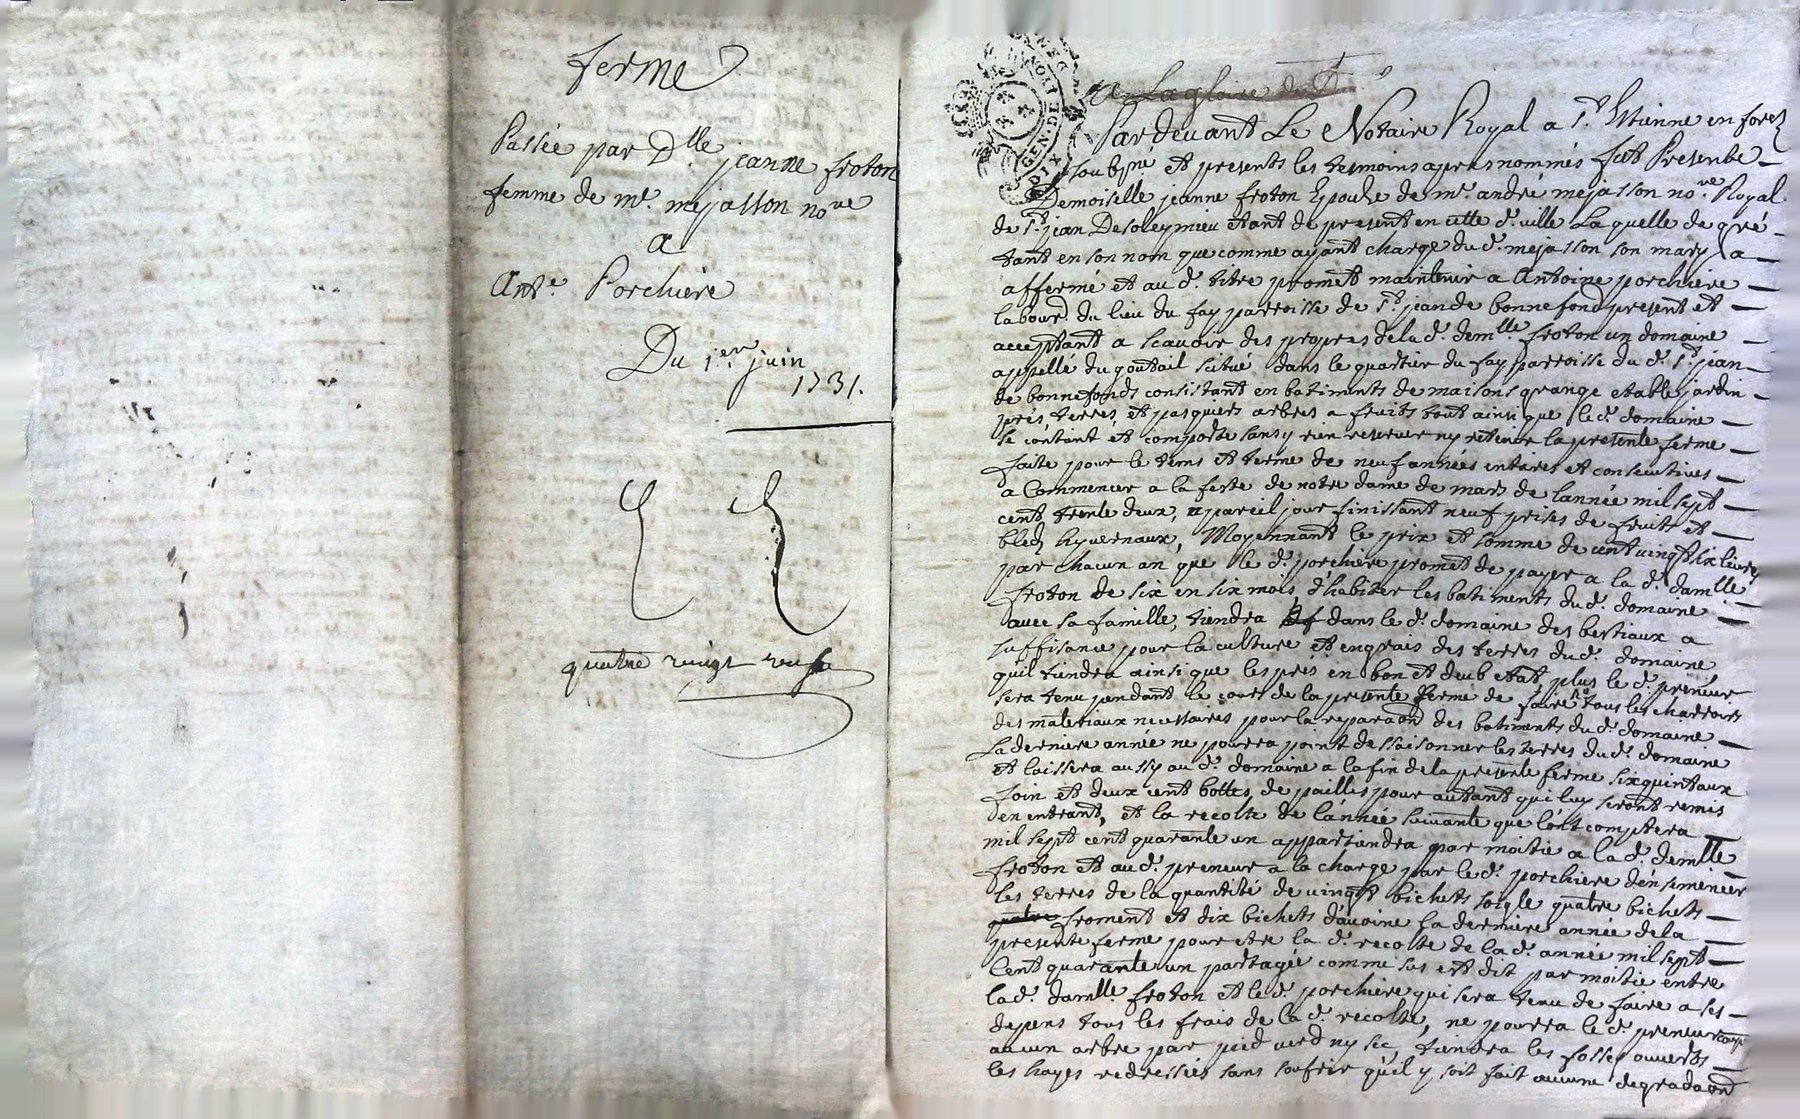 ferme
Passée par Dlle jeanne froton
femme de mr. mejasson nore
a
Ante. Porchiere
Du 1er. juin
1731.
quatre vingt neuf
GEN. DE
DIX
A La gloire de
Par devant Le Notaire Royal a St. Etienne en forez
soubsne et presents les temoins apres nommés fut Presente
Demoiselle jeanne froton Epouse de mr. andré mejasson nore. Royal
de St. jean Desoleymieu etant de present en cette d. ville La quelle de gré
tant en son nom que comme ayant charge du d. mejasson son mary a
affermé et au d. titre promet maintenir a Antoine porchiere
labour. du lieu du fay parroisse de St. jean de bonnefond present et
acceptant a scavoir des propres de la d. demlle froton un domaine
appellé du goutail scitué dans le quartier du fay parroisse du d. St. jean
de bonnefonds consistant en batiments de maisons grange etable jardin
prés, terres, et pasquers arbres a fruits tout ainsi que le d. domaine
se contient et comporte sans y rien reserver ny retenir la presente ferme
faite pour le tems et terme de neuf années entieres et consecutives
a Commencer a la feste de notre dame de mars de lannée mil sept
cent trente deux, a pareil jour finissant neuf prises de fruits et
bleds hyvernaux, Moyennant le prix et somme de cent vingt six livres
par chacun an que le d. porchiere promet de payer a la d. damlle
froton de six en six mois, d'habiter les batiments du d. domaine
avec sa famille, tiendra dans le d. domaine des bestiaux a
suffisance pour la culture et engrais des terres du d. domaine
quil tiendra ainsi que les pres en bon et deub etat plus le d. preneur
sera tenu pendant le cours de la presente ferme de faire tous les charrois
des materiaux necessaires pour la reparaon des batiments du d. domaine
La derniere année ne pourra point dessaisonner les terres du d. domaine
et laissera aussy au d. domaine a la fin de la presente ferme six quintaux
foin et deux cent bottes de pailles pour autant qui luy seront remis
en entrant, et la recolte de lannée suivante que lont comptera
mil sept cent quarante un appartiendra par moitié a la d. demlle
froton et au d. preneur a la charge par le d. porchiere densemencer
les terres de la quantité de vingt bichets soigle quatre bichets
quatre froment et dix bichets davoine la derniere année de la
presente ferme pour etre la d. recolte de la d. année mil sept
Cent quarante un partagée comme sus est dit par moitie entre
la d. damlle. froton et le d. porchiere qui sera tenu de faire a ses
depens tous les frais de la d. recolte, ne pourra le d. preneur coupe
aucun arbre par pied verd ny sec tiendra les fosses ouverts
les hayes redressées sans soufrir quil y soit fait aucune degradaon